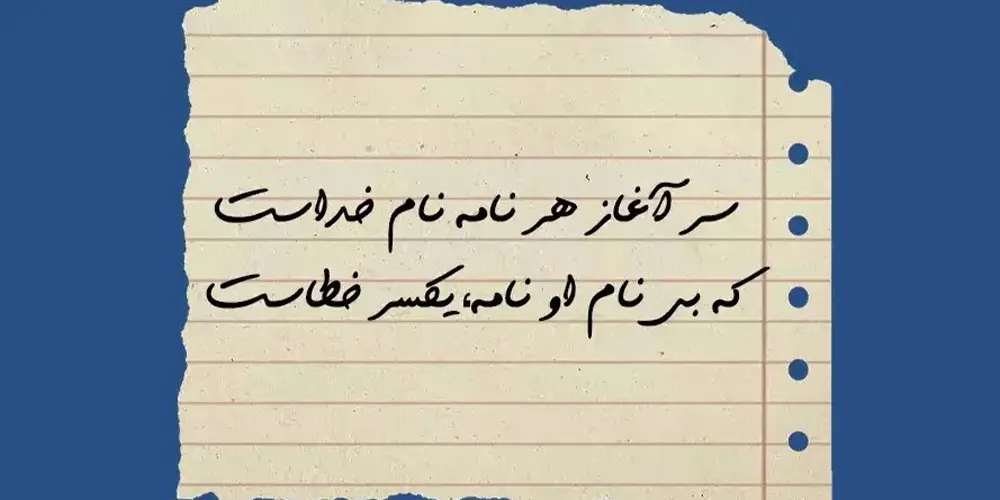 سر آغاز هر نامه نام خداست
که بی نام او نامه، یکسر خطاست